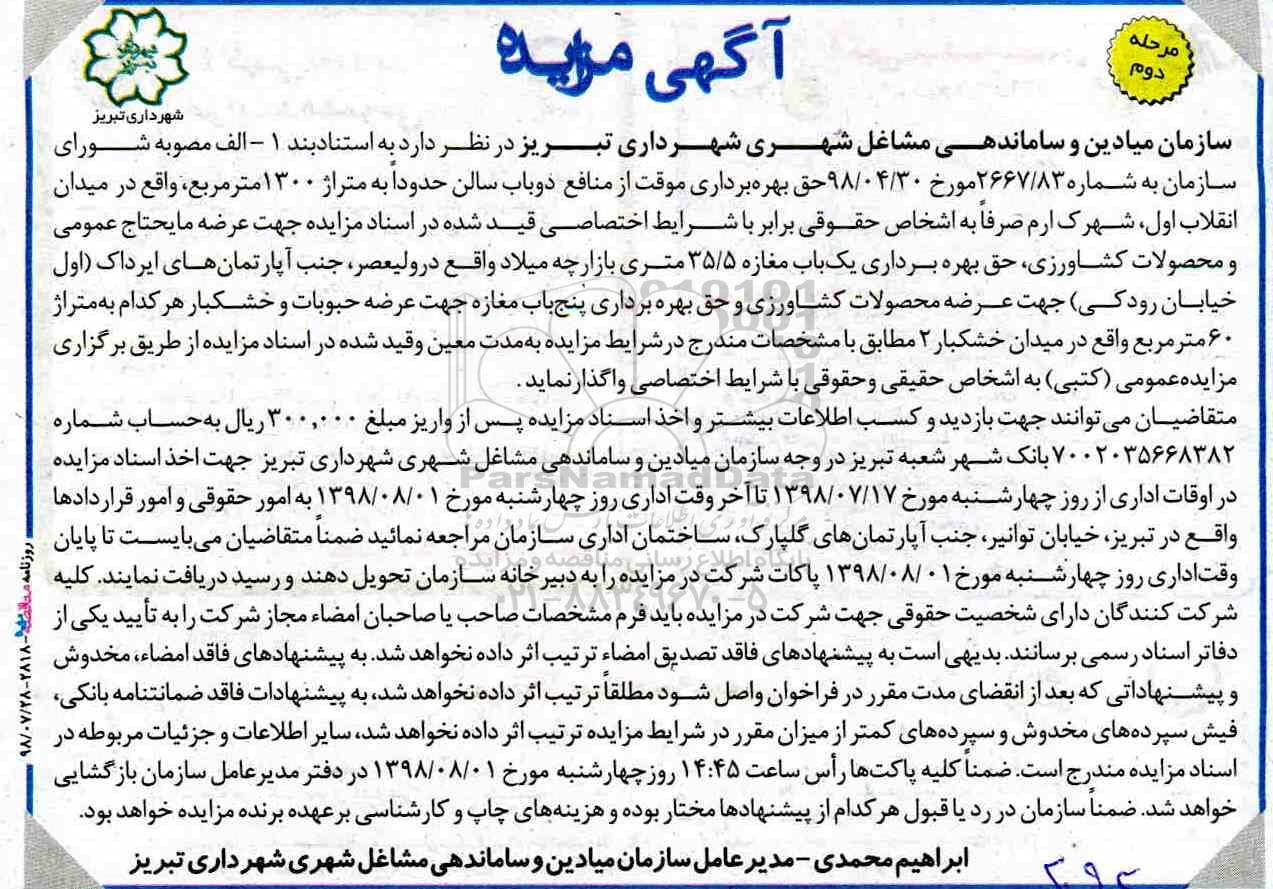 آگهی مزایده
مرحله
دوم
شهرداری تبریز
سازمان میادین و ساماندهی مشاغل شهری شهرداری تبریز در نظر دارد به استنادبند ۱ -الف مصوبه شورای
سازمان به شماره ۲۶۶۷/۸۳مورخ ۹۸/۰۴/۳۰حق بهره‌برداری موقت از منافع دوباب سالن حدوداً به متراژ ۱۳۰۰مترمربع، واقع در میدان
انقلاب اول، شهرک ارم صرفاً به اشخاص حقوقی برابر با شرایط اختصاصی قید شده در اسناد مزایده جهت عرضه مایحتاج عمومی
و محصولات کشاورزی، حق بهره برداری یک‌باب مغازه ۳۵/۵ متری بازارچه میلاد واقع درولیعصر، جنب آپارتمان‌های ایرداک (اول
خیابان رودکی) جهت عرضه محصولات کشاورزی و حق بهره برداری پنج‌باب مغازه جهت عرضه حبوبات و خشکبار هر کدام به‌متراژ
۶۰مترمربع واقع در میدان خشکبار ۲ مطابق با مشخصات مندرج درشرایط مزایده به‌مدت معین وقید شده در اسناد مزایده از طریق برگزاری
مزایده‌عمومی (کتبی) به اشخاص حقیقی وحقوقی با شرایط اختصاصی واگذارنماید.
متقاضیان می‌توانند جهت بازدید و کسب اطلاعات بیشتر و اخذ اسناد مزایده پس از واریز مبلغ ۳۰۰,۰۰۰ ریال به‌حساب شماره
۷۰۰۲۰۳۵۶۶۸۳۸۲بانک شهر شعبه تبریز در وجه سازمان میادین و ساماندهی مشاغل شهری شهرداری تبریز جهت اخذ اسناد مزایده
در اوقات اداری از روز چهارشنبه مورخ ۱۳۹۸/۰۷/۱۷ تا آخر وقت اداری روز چهارشنبه مورخ ۱۳۹۸/۰۸/۰۱ به امور حقوقی و امور قراردادها
واقع در تبریز، خیابان توانیر، جنب آپارتمان‌های گلپارک، ساختمان اداری سازمان مراجعه نمائید ضمناً متقاضیان می‌بایست تا پایان
وقت‌اداری روز چهارشنبه مورخ ۱۳۹۸/۰۸/۰۱ پاکات شرکت در مزایده را به دبیرخانه سازمان تحویل دهند و رسید دریافت نمایند. کلیه
شرکت کنندگان دارای شخصیت حقوقی جهت شرکت در مزایده باید فرم مشخصات صاحب یا صاحبان امضاء مجاز شرکت را به تأیید یکی از
دفاتر اسناد رسمی برسانند. بدیهی است به پیشنهادهای فاقد تصدیق امضاء ترتیب اثر داده نخواهد شد. به پیشنهادهای فاقد امضاء، مخدوش
و پیشنهاداتی که بعد از انقضای مدت مقرر در فراخوان واصل شود مطلقاً ترتیب اثر داده نخواهد شد، به پیشنهادات فاقد ضمانتنامه بانکی،
فیش سپرده‌های مخدوش و سپرده‌های کمتر از میزان مقرر در شرایط مزایده ترتیب اثر داده نخواهد شد، سایر اطلاعات و جزئیات مربوطه در
اسناد مزایده مندرج است. ضمناً کلیه پاکت‌ها رأس ساعت ۱۴:۴۵ روزچهارشنبه مورخ ۱۳۹۸/۰۸/۰۱ در دفتر مدیرعامل سازمان بازگشایی
خواهد شد. ضمناً سازمان در رد یا قبول هر کدام از پیشنهادها مختار بوده و هزینه‌های چاپ و کارشناسی برعهده برنده مزایده خواهد بود.
ابراهیم محمدی - مدیرعامل سازمان میادین و ساماندهی مشاغل شهری شهرداری تبریز
روزنامه مناقصه مزایده -۲۸۱۸-۹۸/۰۷/۲۸
ParsNamadData
پایگاه اطلاع رسانی مناقصه و مزایده
۰۲۱-۸۸۳۴۹۶۷۰-۵